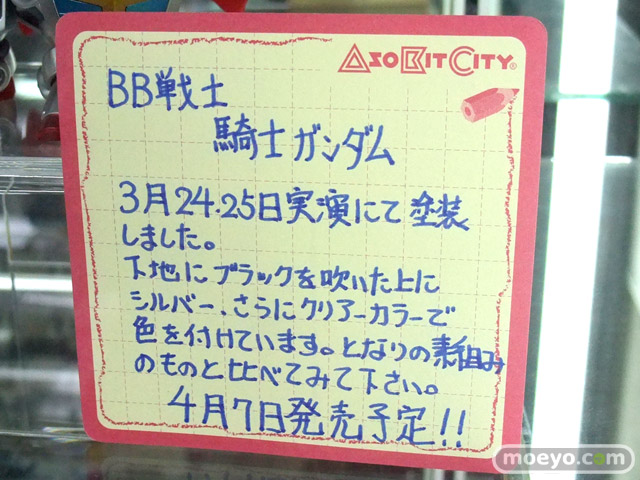 AsoBitCity
BB戦士
騎士ガンダム
3月24.25日実演にて塗装
しました。
下地にブラックを吹いた上に
シルバー、さらにクリアーカラーで
色を付けています。となりの素組み
のものと比べてみて下さい。
4月7日発売予定!!
moeyo.com